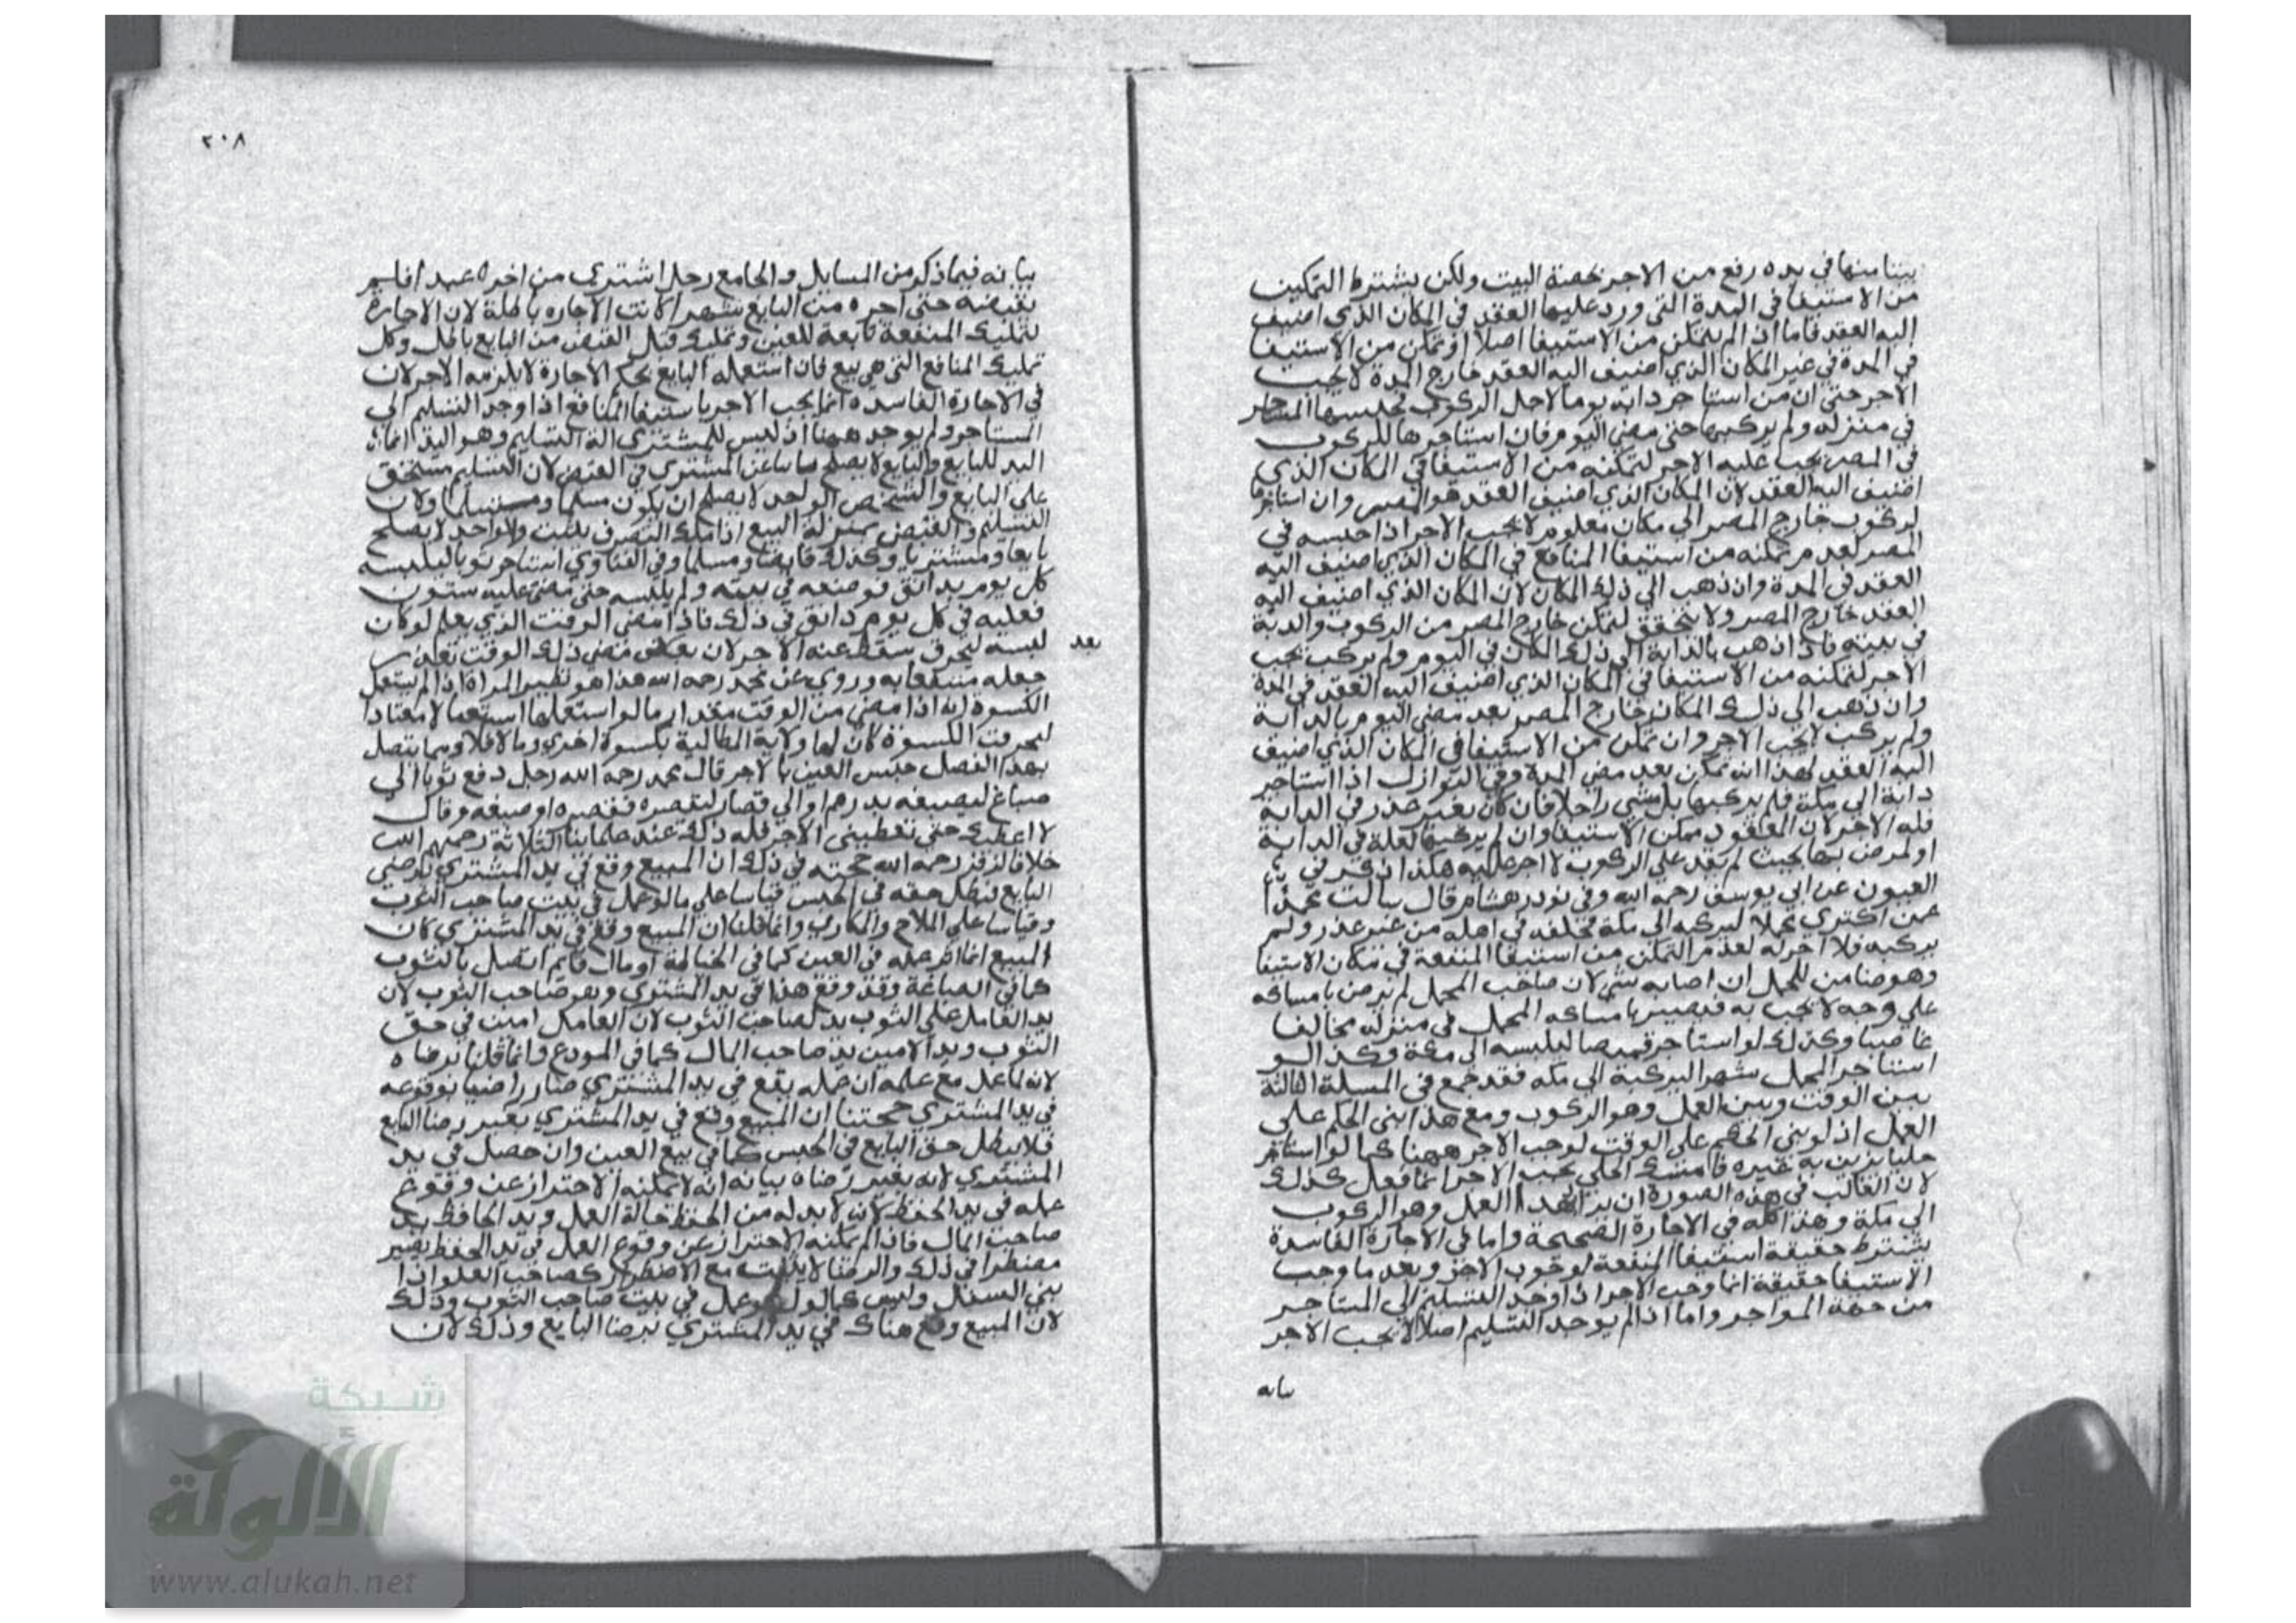 بيتا منها في يده رفع من الاجر بحصة البيت ولكن يشترط التمكين
من الاستيفا في المدة التي ورد عليها العقد في المكان الذي اضيف
اليه العقد فاما اذا لم يتمكن من الاستيفا اصلا او تمكن من الاستيفا
في المدة في غير المكان الذي اضيف اليه العقد خارج المدة لا يجب
الاجر حتى ان من استاجر دابة يوما لاجل الركوب فحبسها المستاجر
في منزله ولم يركبها حتى مضى اليوم فان استاجرها للركوب
في المصر يجب عليه الاجر لتمكنه من الاستيفا في المكان الذي
اضيف اليه العقد لان المكان الذي اضيف العقد هو المصر وان استاجرها
لركوب خارج المصر الي مكان معلوم لا يجب الاجر اذا حبسه في
المصر لعدم تمكنه من استيفا المنافع في المكان الذي اضيف اليه
العقد في المدة وان ذهب الي ذلك المكان لان المكان الذي اضيف اليه
العقد خارج المصر ولا يتحقق لتمكن خارج المصر من الركوب والدابة
في بيته فاذا ذهب بالدابة الي ذلك المكان في اليوم ولم يركب يجب
الاجر لتمكنه من الاستيفا في المكان الذي اضيف اليه العقد في المدة
وان ذهب الي ذلك المكان خارج المصر بعد مضي اليوم بالدابة
ولم يركب لا يجب الاجر وان تمكن من الاستيفا في المكان الذي اضيف
اليه العقد لهذا انه تمكن بعد مضي المدة وفي النوازل اذا استاجر
دابة الي مكة فلم يركبها بل مشي راجلا فان كان بغير عذر في الدابة
فله الاجر لان المعقود ممكن الاستيفا وان لم يركبها لعلة في الدابة
او لمرض بها بحيث لم يقدر علي الركوب لا اجر عليه هكذا ذكر في
العيون عن ابي يوسف رحمه الله وفي نوادر هشام قال سالت محمدا
عمن اكتري محملا ليركبه الي مكة فخلفه في اهله من غير عذر ولم
يركبه فلا اجر له لعدم التمكن من استيفا المنفعة في مكان الاستيفا
وهو ضامن للمحمل ان اصابه شي لان صاحب المحمل لم يرض بامساكه
علي وجه لا يجب به فيصير بامساكه المحمل في منزله مخالفا
غاصبا وكذلك لو استاجر قميصا ليلبسه الي مكة وكذا لو
استاجر المحمل شهرا ليركبه الي مكه فقد جمع في المسلة الثالثة
بين الوقت وبين العمل وهو الركوب ومع هذا بني الحكم علي
العمل اذ لو بني الحكم على الوقت لوجب الاجر ههنا كما لو استاجر
حليا يزين به غيره فامسك الحلي يجب الاجر انما فعل كذلك
لان الغالب في هذه الصورة ان يراد بهذا العمل وهو الركوب
الي مكة وهذا كله في الاجارة الصحيحة واما في الاجارة الفاسدة
يشترط حقيقة استيفا المنفعة لوجوب الاجر وبعد ما وجب
الاستيفا حقيقة انما وجب الاجر اذا وجد التسليم الي المستاجر
من جهة المواجر واما اذا لم يوجد التسليم اصلا لا يجب الاجر
بيانه
٢٠٨
بيانه فيما ذكر من المسايل والجامع رجل اشتري من اخر عبدا فلم
يقبضه حتى اجره من البايع شهرا كانت الاجاره باطلة لان الاجارة
لتمليك المنفعة تابعة للعين وتمليك قبل القبض من البايع باطل وكل
تمليك المنافع التي هي بيع فان استعمله البايع بحكم الاجارة لا يلزمه الاجر لان
في الاجارة الفاسده انما يجب الاجر باستيفا المنافع اذا وجد التسليم الي
المستاجر ولم يوجد ههنا اذ ليس للمشتري الة التسليم وهو اليد انما
اليد للبايع والبايع لا يصلح نايبا عن المشتري في القبض لان التسليم مستحق
علي البايع والشخص الواحد لا يصلح ان يكون مسلما ومتسلما ولان
التسليم والقبض بمنزلة البيع اذا ملك التصرف يثبت والواحد لا يصلح
بايعا ومشتريا وكذلك قابضا ومسلما وفي الفتاوي استاجر ثوبا ليلبسه
كل يوم بدانق فوضعه في بيته ولم يلبسه حتى مضي عليه ستون
فعليه في كل يوم دانق في ذلك فاذا مضي الوقت الذي يعلم لو كان
بعد
لبسه لتخرق سقط عنه الاجر لان بمضي ذلك الوقت تعذر
جعله منتفعا به وروي عن محمد رحمه الله هذا هو نظير المراة اذا لم تستعمل
الكسوة انه اذا مضي من الوقت مقدار ما لو استعملها استعمالا معتادا
لتخرقت الكسوة كان لها ولاية المطالبة بكسوة اخري وما لا فلا ومما يتصل
بهذا الفصل حبس العين بالاجر قال محمد رحمه الله رجل دفع ثوبا الي
صباغ ليصبغه بدرهم او الي قصار ليقصره فقصره او صبغه وقال
لا اعطيك حتى تعطيني الاجر فله ذلك عند علماينا الثلاثة رحمهم الله
خلافا لزفر رحمه الله حجته في ذلك ان المبيع وقع في يد المشتري برضي
البايع فبطل حقه في الحبس قياسا علي ما لو عمل في بيت صاحب الثوب
وقياسا علي الملاح والمكاري وانما قلنا ان المبيع وقع في يد المشتري لان
المبيع انما اثر عمله في العين كما في الخياطة او مال قايم اتصل بالثوب
كما في الصباغة وقد وقع هذا في يد المشتري وهو صاحب الثوب لان
يد العامل علي الثوب يد لصاحب الثوب لان العامل امين في حق
الثوب ويد الامين يد صاحب المال كما في المودع وانما قلنا برضاه
لانه لما عمل مع علمه ان عمله يقع في يد المشتري صار راضيا بوقوعه
في يد المشتري حجتنا ان المبيع وقع في يد المشتري بغير رضا البايع
فلا يبطل حق البايع في الحبس كما في بيع العين وان حصل في يد
المشتري لانه بغير رضاه بيانه انه لا يمكنه الاحتراز عن وقوع
عمله في يد الحفظ لانه لا بد له من الحفظ حالة العمل ويد الحافظ يد
صاحب المال فاذا لم يمكنه الاحتراز عن وقوع العمل في يد الحفظ يصير
مضطرا في ذلك والرضا لا يثبت مع الاضطرار كصاحب العلو اذا
بني السفل وليس كما لو عمل في بيت صاحب الثوب وذلك
لان المبيع وقع هناك في يد المشتري برضا البايع وذلك لان
شبكة
الألوكة
www.alukah.net